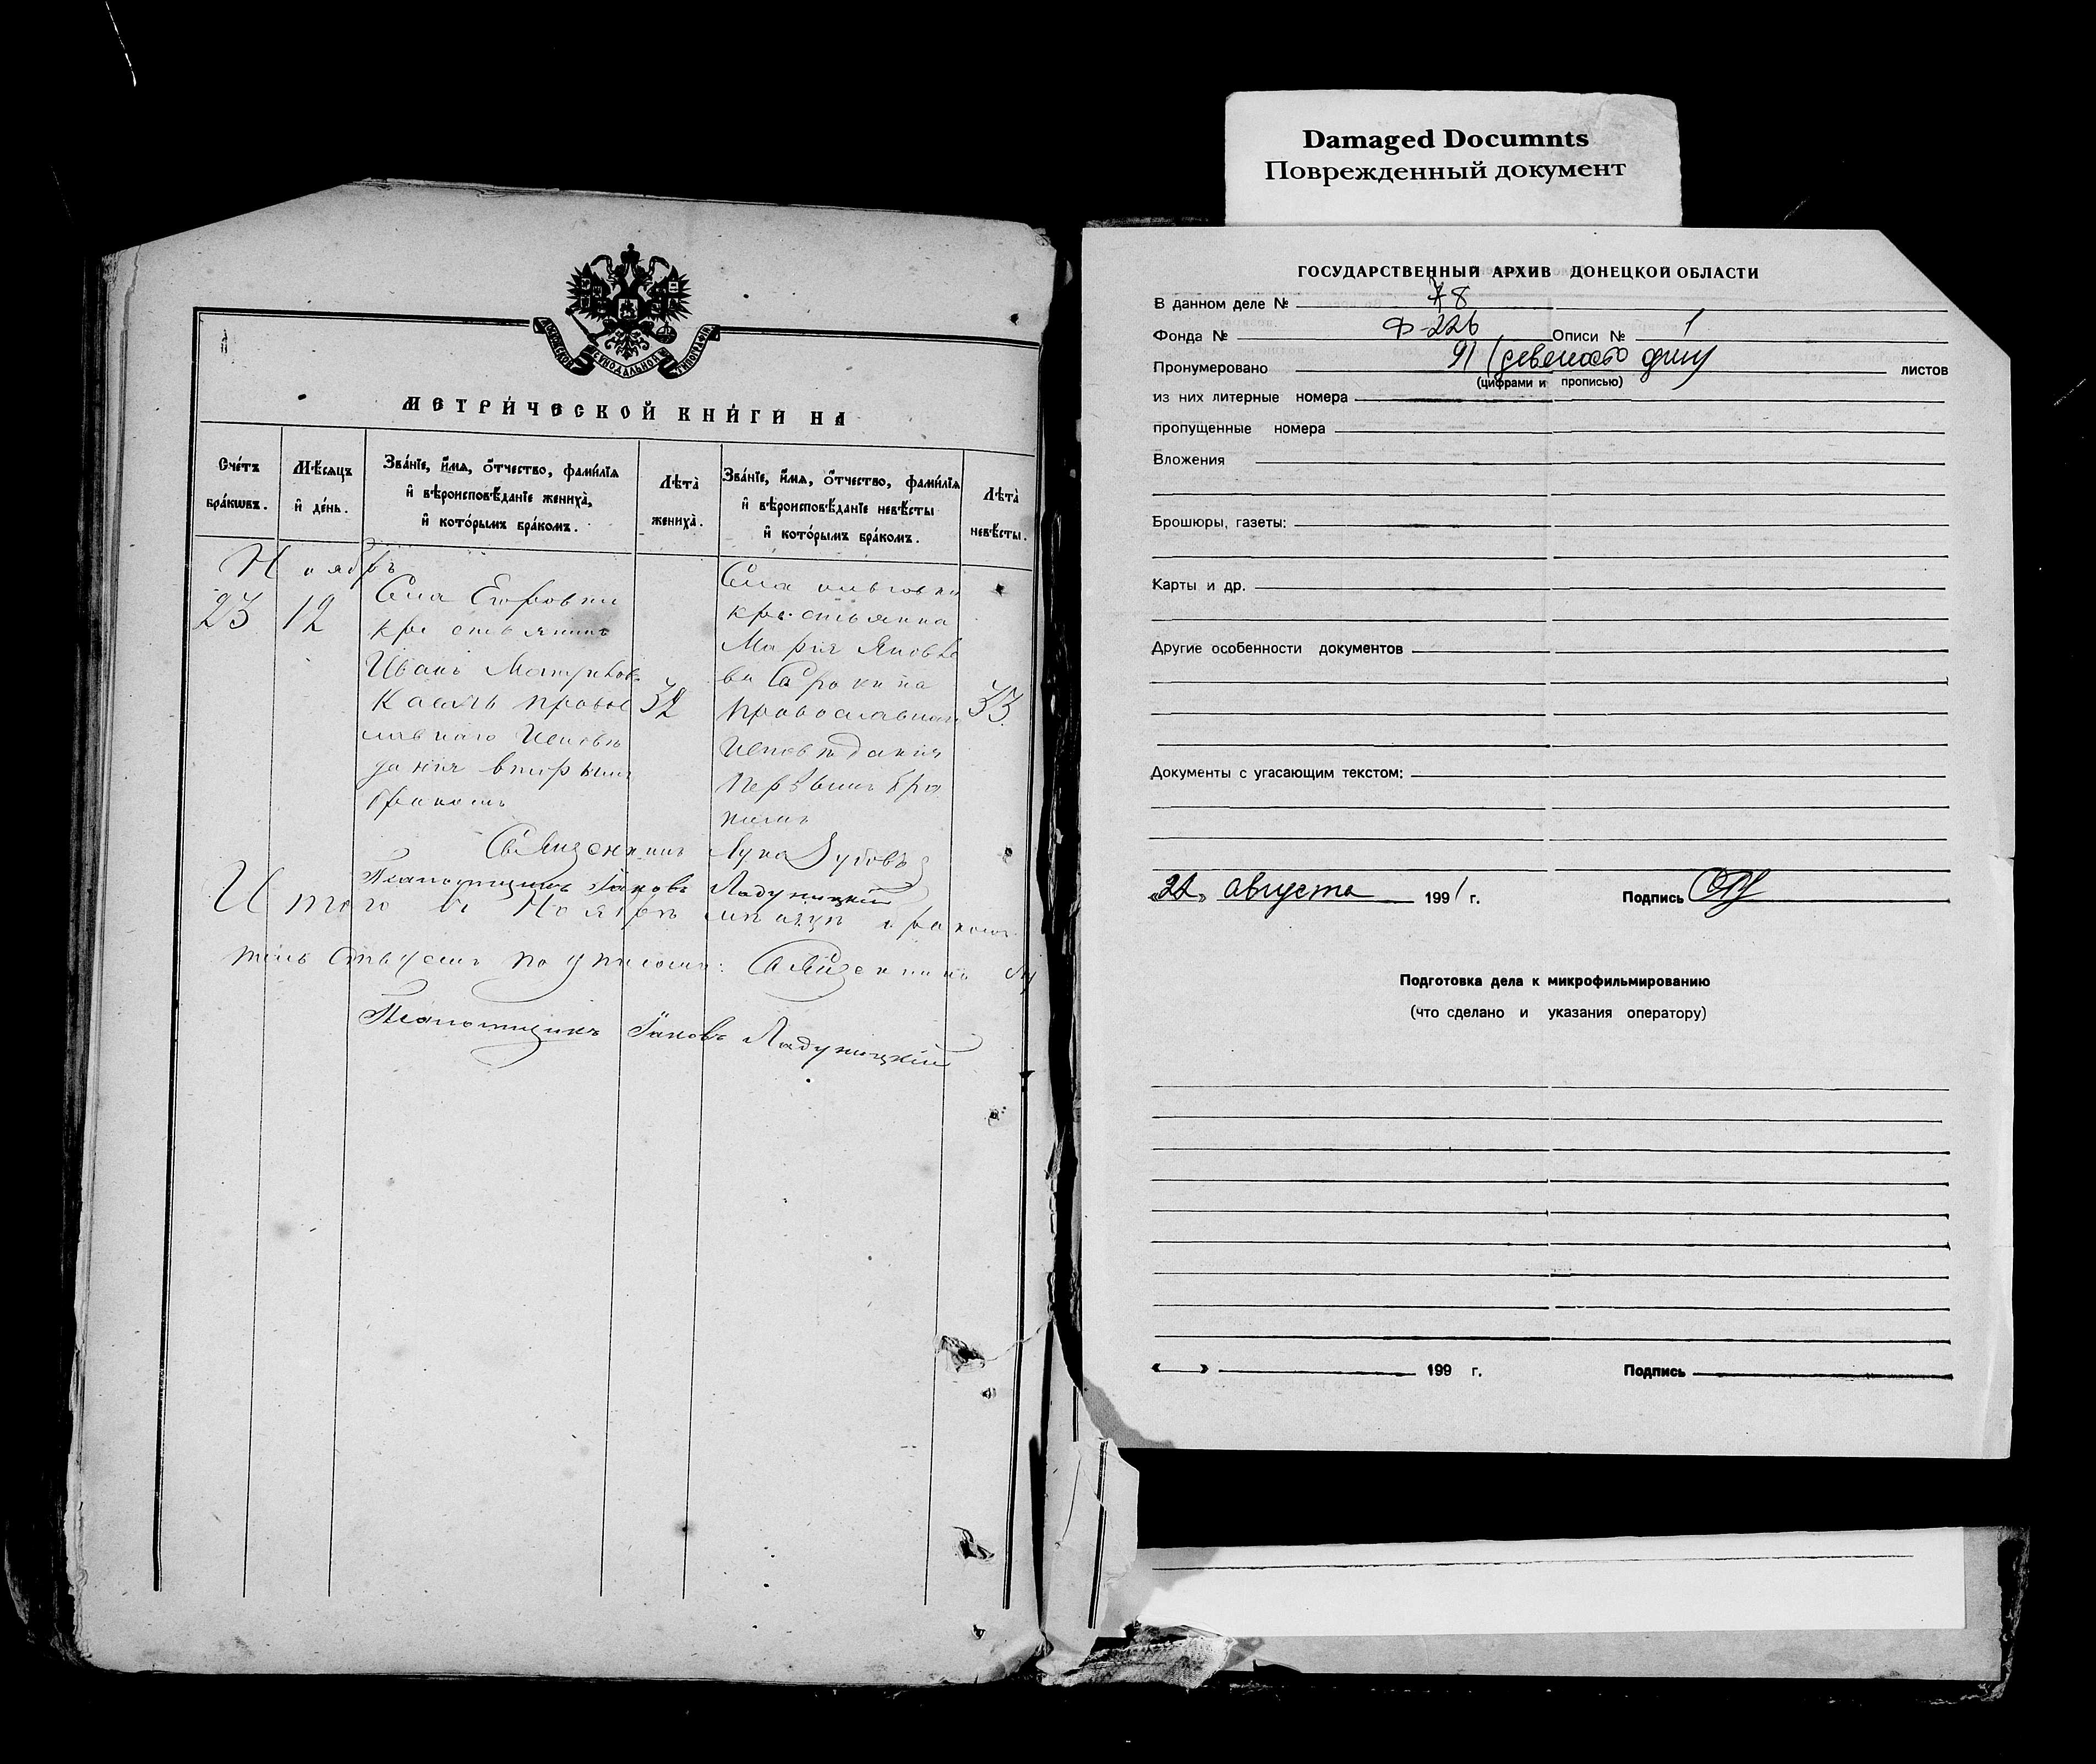 Damaged Documnts
Поврежденный документ
МЕТРИ́ЧЕСКОЙ КНИ́ГИ НА
МОСКОВСКОЙ СѴНОДАЛЬНОЙ ТИПОГРАФІИ
Сче́тъ бра́кѡвъ.
Мѣ́сяцъ и҆ де́нь.
Зва́нїе, и҆́мѧ, ѻ҆́тчество, фами́лїѧ
и҆ вѣроисповѣ́данїе женихà,
и҆ кото́рымъ бра́комъ.
Лѣ́та̀ женихà.
Зва́нїе, и҆́мѧ, ѻ҆́тчество, фами́лїѧ
и҆ вѣроисповѣ́данїе невѣ́сты
и҆ кото́рымъ бра́комъ.
Лѣ́та̀ невѣ́сты.
Ноябрь
23
12
Села Егоровки
крестьянинъ
Иванъ
правос
лавнаго Исповѣ
данія вторымъ
бракомъ
32
Села
крестьянка
Марія Яковле
ва Сорокина
православнаго
Исповѣданія
первымъ бра
комъ
33
Священникъ Лука Зубовъ
Псаломщикъ Іаковъ Ладуницкій
Итого въ Ноябрѣ мѣсяцѣ
Священникъ Лу
Псаломщикъ Іаковъ Ладуницкій
ГОСУДАРСТВЕННЫЙ АРХИВ ДОНЕЦКОЙ ОБЛАСТИ
В данном деле № 78
Фонда № Ф-226 Описи № 1
Пронумеровано 91 (девяносто один) листов
(цифрами и прописью)
из них литерные номера
пропущенные номера
Вложения
Брошюры, газеты:
Карты и др.
Другие особенности документов
Документы с угасающим текстом:
«22» августа 1991 г. Подпись
Подготовка дела к микрофильмированию
(что сделано и указания оператору)
« » 199 г. Подпись